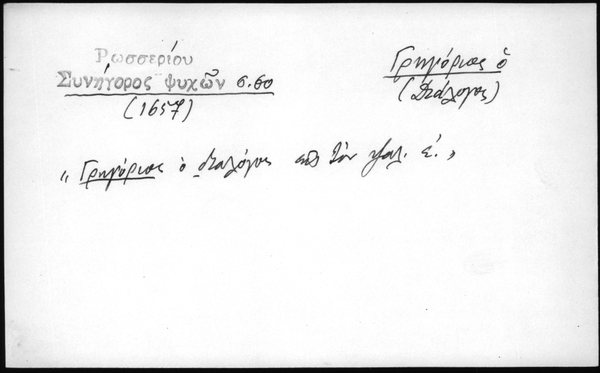 Ρωσσερίου
Συνήγορος ψυχῶν σ. 60
(1657)
Γρηγόριος ὁ
(Διάλογος)
"Γρηγόριος ὁ διαλόγος εἰς τὸν ψαλ. ε΄."